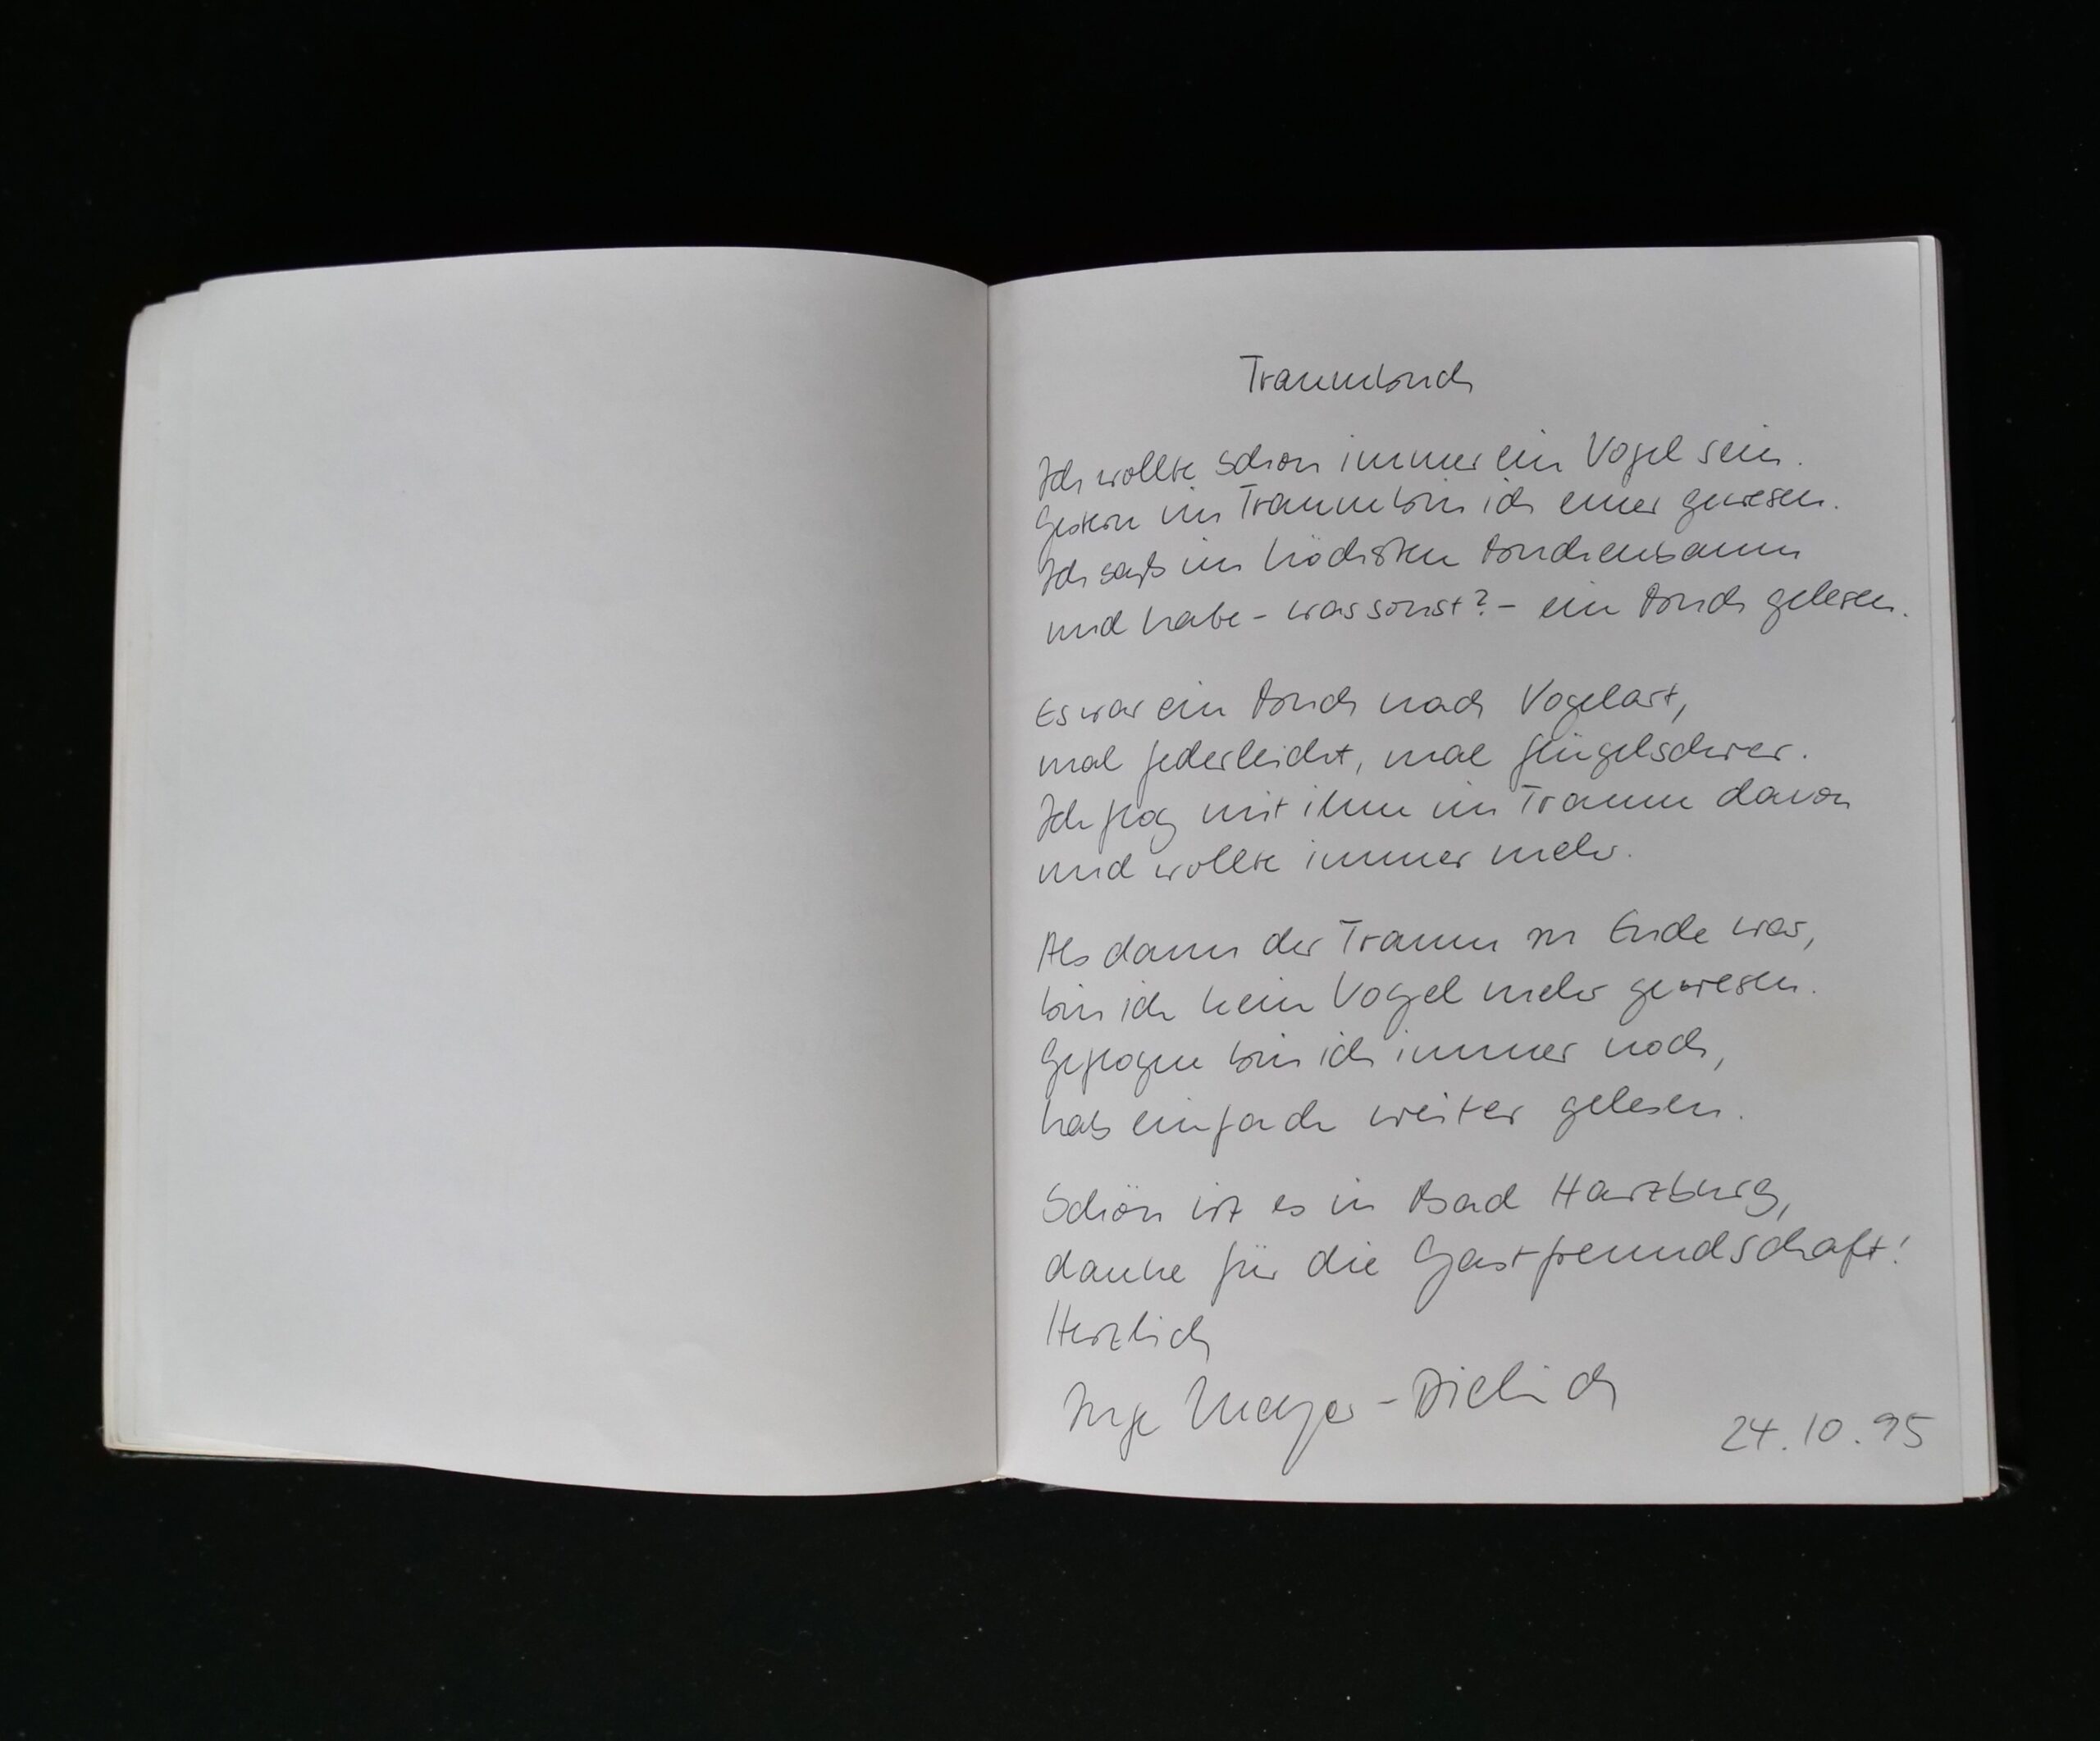 Traumbuch
Ich wollte schon immer ein Vogel sein.
Gestern im Traum bin ich einer gewesen.
Ich saß im höchsten Buchenbaum
und habe - was sonst? - ein Buch gelesen.
Es war ein Buch nach Vogelart,
mal federleicht, mal flügelschwer.
Ich flog mit ihm im Traum davon
und wollte immer mehr.
Als dann der Traum zu Ende war,
bin ich kein Vogel mehr gewesen.
Geflogen bin ich immer noch,
hab einfach weiter gelesen.
Schön ist es in Bad Harzburg,
danke für die Gastfreundschaft!
Herzlich
Inge Meyer-Dietrich
24.10.95